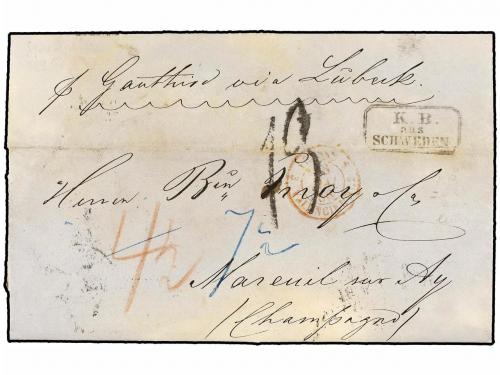 p. Gauthiod via Lübeck.
K. B.
aus
SCHWEDEN
13
Herren Binn Inoy & Co
4½ 7½
Mareuil sur Ay
(Champagne)